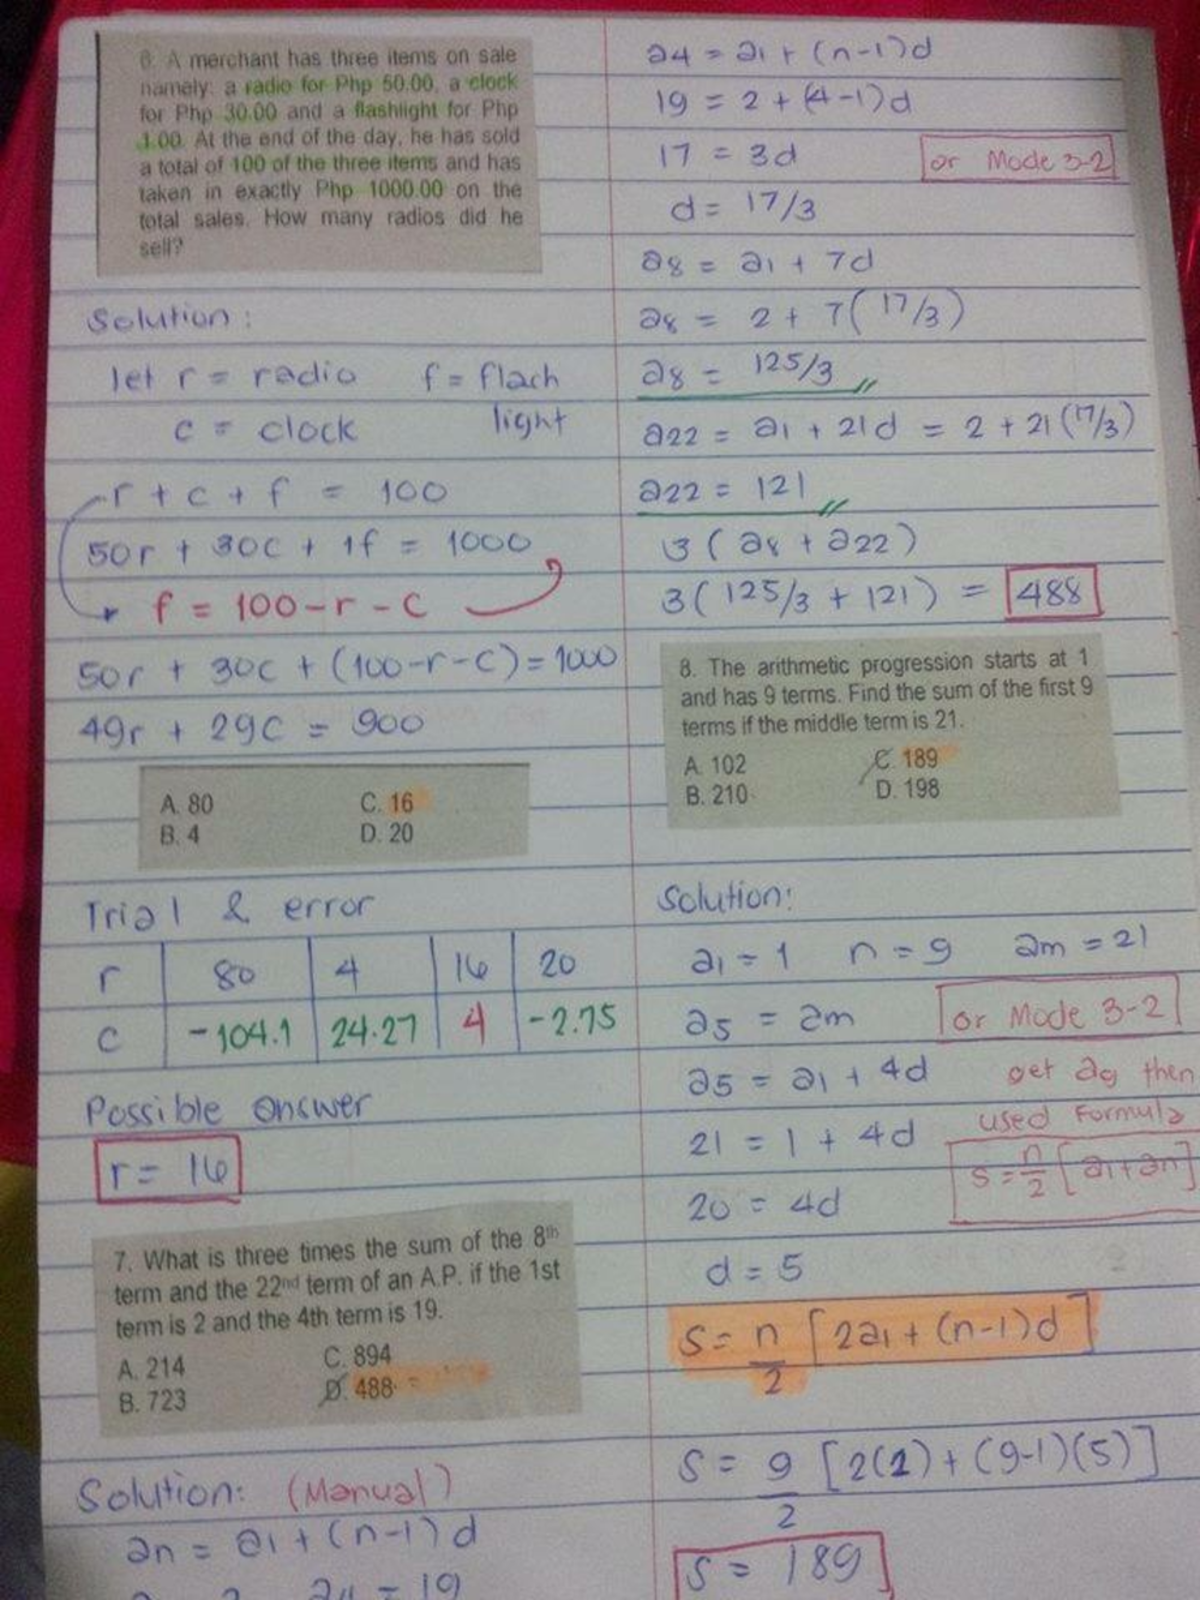 6. A merchant has three items on sale
namely: a radio for Php 50.00, a clock
for Php 30.00 and a flashlight for Php
1.00. At the end of the day, he has sold
a total of 100 of the three items and has
taken in exactly Php 1000.00 on the
total sales. How many radios did he
sell?
Solution:
let r = radio f = flach
c = clock light
r + c + f = 100
50r + 30c + 1f = 1000
f = 100-r-c
50r + 30c + (100-r-c)=1000
49r + 29c = 900
A. 80 C. 16
B. 4 D. 20
Trial & error
r 80 4 16 20
c -104.1 24.27 4 -2.75
Possible answer
r = 16
7. What is three times the sum of the 8th
term and the 22nd term of an A.P. if the 1st
term is 2 and the 4th term is 19.
A. 214 C. 894
B. 723 D. 488
Solution: (Manual)
an = a1 + (n-1)d
a4 = 19
a4 = a1 + (n-1)d
19 = 2 + (4-1)d
17 = 3d or Mode 3-2
d = 17/3
a8 = a1 + 7d
a8 = 2 + 7(17/3)
a8 = 125/3
a22 = a1 + 21d = 2 + 21(17/3)
a22 = 121
3(a8 + a22)
3(125/3 + 121) = 488
8. The arithmetic progression starts at 1
and has 9 terms. Find the sum of the first 9
terms if the middle term is 21.
A. 102 C. 189
B. 210 D. 198
Solution:
a1 = 1 n = 9 am = 21
a5 = am or Mode 3-2
a5 = a1 + 4d get a9 then
21 = 1 + 4d used Formula
20 = 4d S = n/2 [a1+an]
d = 5
S = n/2 [2a1 + (n-1)d]
S = 9/2 [2(1) + (9-1)(5)]
S = 189